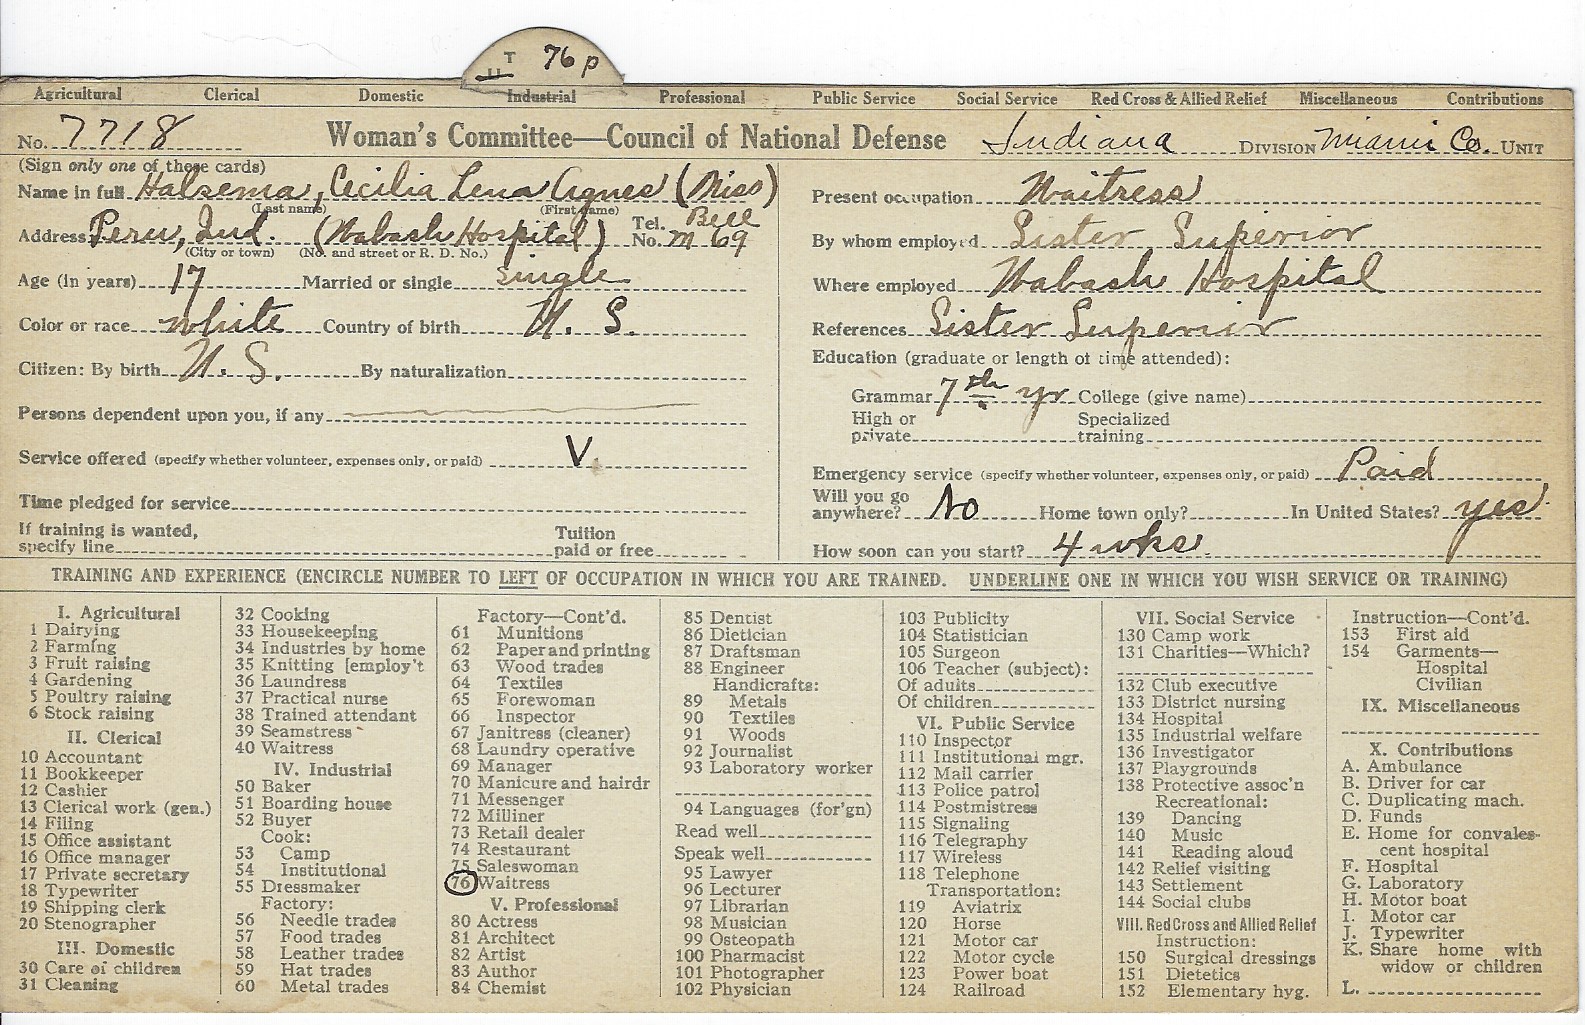 T 76 p
U
Agricultural Clerical Domestic Industrial Professional Public Service Social Service Red Cross & Allied Relief Miscellaneous Contributions
No. 7718 Woman's Committee—Council of National Defense Indiana DIVISION Miami Co. UNIT
(Sign only one of these cards)
Name in full Halsema, Cecilia Lena Agnes (Miss)
(Last name) (First name)
Address Peru, Ind. (Wabash Hospital) Tel. No. Bell M 69
(City or town) (No. and street or R. D. No.)
Age (in years) 17 Married or single single
Color or race white Country of birth U. S.
Citizen: By birth U. S. By naturalization
Persons dependent upon you, if any
Service offered (specify whether volunteer, expenses only, or paid) V.
Time pledged for service
If training is wanted,
specify line Tuition paid or free
Present occupation Waitress
By whom employed Sister Superior
Where employed Wabash Hospital
References Sister Superior
Education (graduate or length of time attended):
Grammar 7th yr College (give name)
High or private Specialized training
Emergency service (specify whether volunteer, expenses only, or paid) Paid
Will you go anywhere? No Home town only? In United States? yes
How soon can you start? 4 wks.
TRAINING AND EXPERIENCE (ENCIRCLE NUMBER TO LEFT OF OCCUPATION IN WHICH YOU ARE TRAINED. UNDERLINE ONE IN WHICH YOU WISH SERVICE OR TRAINING)
I. Agricultural
1 Dairying
2 Farming
3 Fruit raising
4 Gardening
5 Poultry raising
6 Stock raising
II. Clerical
10 Accountant
11 Bookkeeper
12 Cashier
13 Clerical work (gen.)
14 Filing
15 Office assistant
16 Office manager
17 Private secretary
18 Typewriter
19 Shipping clerk
20 Stenographer
III. Domestic
30 Care of children
31 Cleaning
32 Cooking
33 Housekeeping
34 Industries by home
35 Knitting [employ't
36 Laundress
37 Practical nurse
38 Trained attendant
39 Seamstress
40 Waitress
IV. Industrial
50 Baker
51 Boarding house
52 Buyer
Cook:
53 Camp
54 Institutional
55 Dressmaker
Factory:
56 Needle trades
57 Food trades
58 Leather trades
59 Hat trades
60 Metal trades
Factory—Cont'd.
61 Munitions
62 Paper and printing
63 Wood trades
64 Textiles
65 Forewoman
66 Inspector
67 Janitress (cleaner)
68 Laundry operative
69 Manager
70 Manicure and hairdr
71 Messenger
72 Milliner
73 Retail dealer
74 Restaurant
75 Saleswoman
76 Waitress
V. Professional
80 Actress
81 Architect
82 Artist
83 Author
84 Chemist
85 Dentist
86 Dietician
87 Draftsman
88 Engineer
Handicrafts:
89 Metals
90 Textiles
91 Woods
92 Journalist
93 Laboratory worker
94 Languages (for'gn)
Read well
Speak well
95 Lawyer
96 Lecturer
97 Librarian
98 Musician
99 Osteopath
100 Pharmacist
101 Photographer
102 Physician
103 Publicity
104 Statistician
105 Surgeon
106 Teacher (subject):
Of adults
Of children
VI. Public Service
110 Inspector
111 Institutional mgr.
112 Mail carrier
113 Police patrol
114 Postmistress
115 Signaling
116 Telegraphy
117 Wireless
118 Telephone
Transportation:
119 Aviatrix
120 Horse
121 Motor car
122 Motor cycle
123 Power boat
124 Railroad
VII. Social Service
130 Camp work
131 Charities—Which?
132 Club executive
133 District nursing
134 Hospital
135 Industrial welfare
136 Investigator
137 Playgrounds
138 Protective assoc'n
Recreational:
139 Dancing
140 Music
141 Reading aloud
142 Relief visiting
143 Settlement
144 Social clubs
VIII. Red Cross and Allied Relief
Instruction:
150 Surgical dressings
151 Dietetics
152 Elementary hyg.
Instruction—Cont'd.
153 First aid
154 Garments—
Hospital
Civilian
IX. Miscellaneous
X. Contributions
A. Ambulance
B. Driver for car
C. Duplicating mach.
D. Funds
E. Home for convales-
cent hospital
F. Hospital
G. Laboratory
H. Motor boat
I. Motor car
J. Typewriter
K. Share home with
widow or children
L.